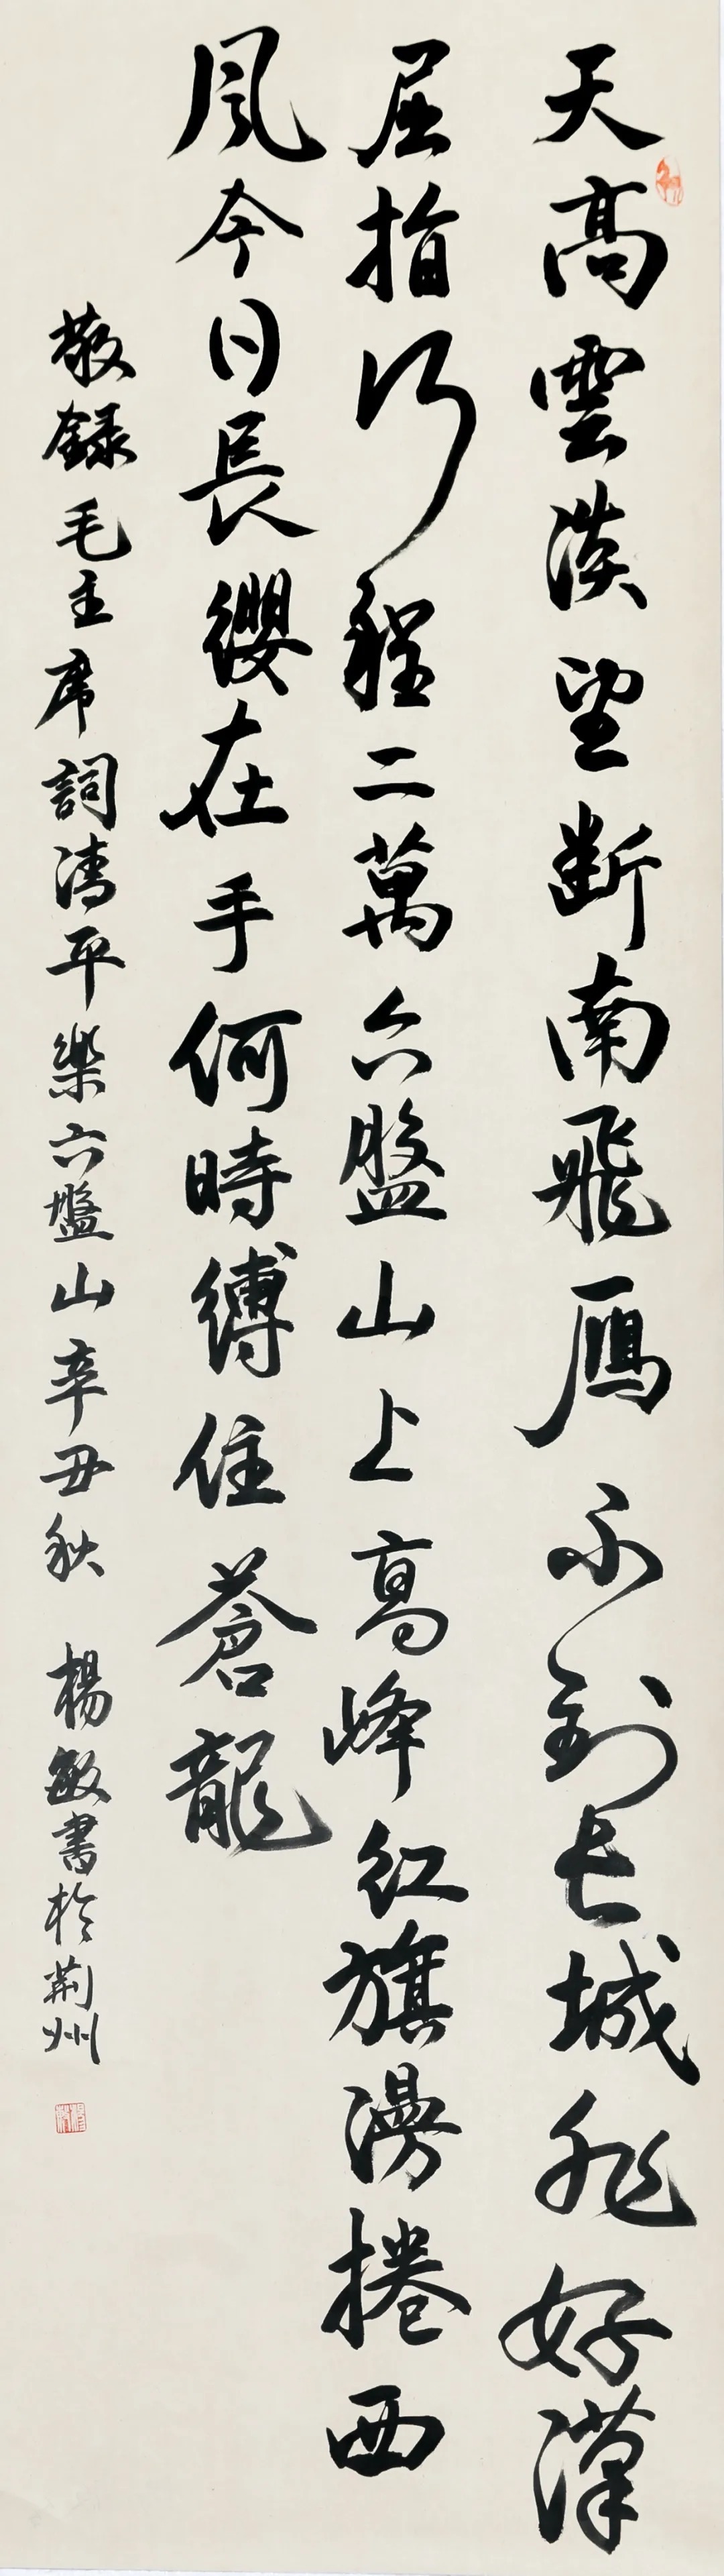 天高雲淡望斷南飛雁不到長城非好漢
屈指行程二萬六盤山上高峰紅旗漫捲西
風今日長纓在手何時縛住蒼龍
敬録毛主席詞清平樂六盤山辛丑秋 楊敏書於荊州